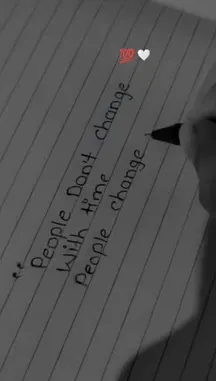 💯🤍
" People Dont change
With time
People change